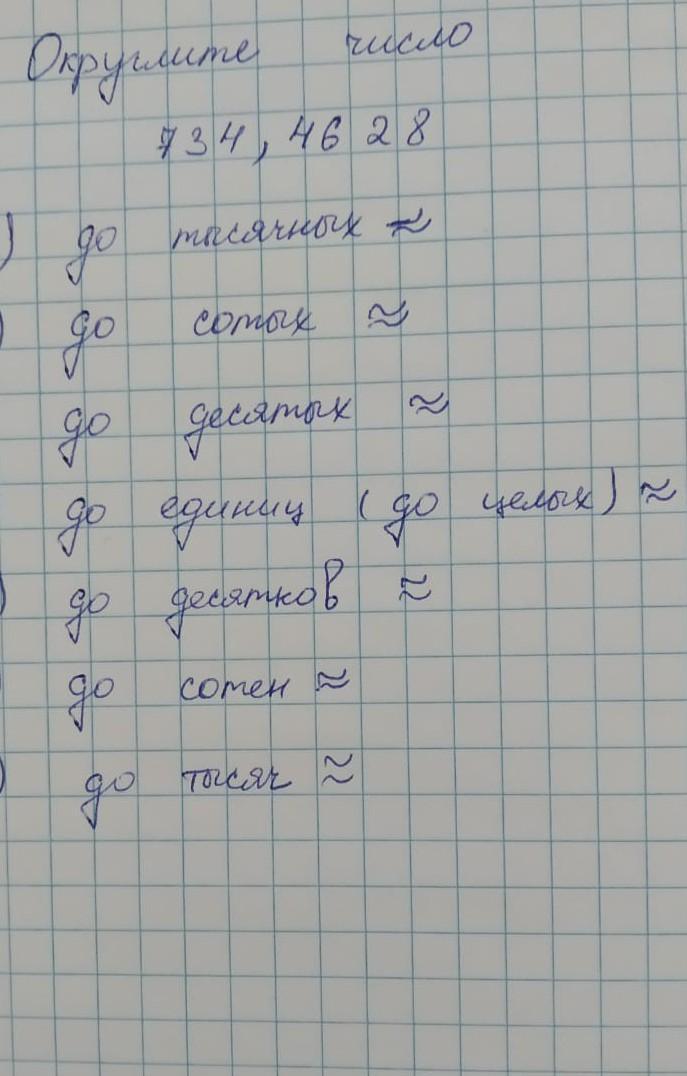 Округлите число
734,4628
) до тысячных ≈
) до сотых ≈
до десятых ≈
до единиц (до целых) ≈
) до десятков ≈
до сотен ≈
) до тысяч ≈